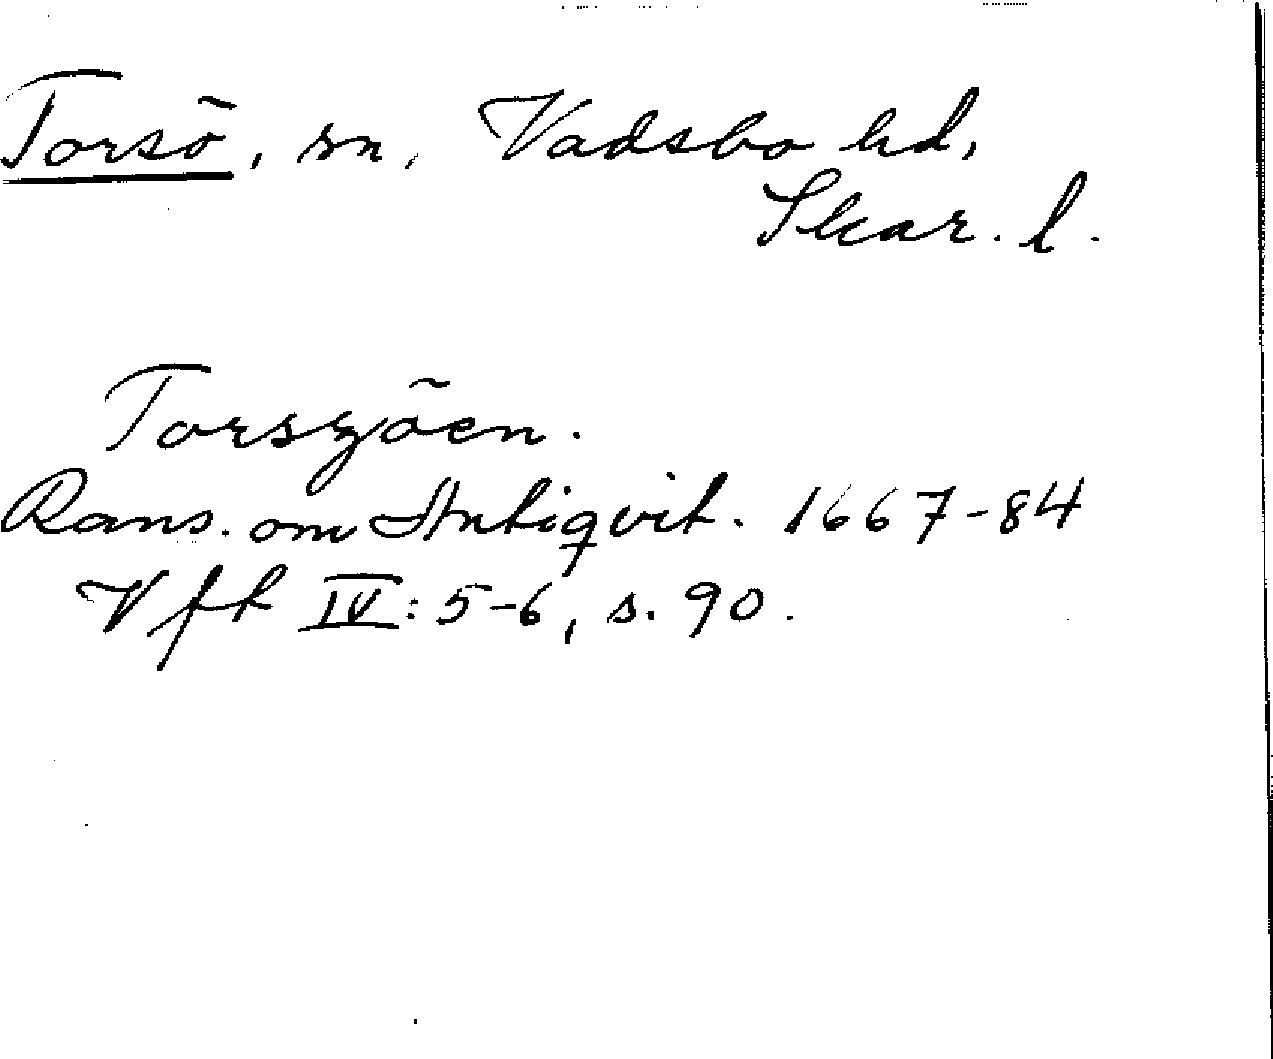 Torsö, sn, Vadsbo hd,
Skar. l.
Torszöen.
Rans. om Antiqvit. 1667-84
Vft IV: 5-6, s. 90.